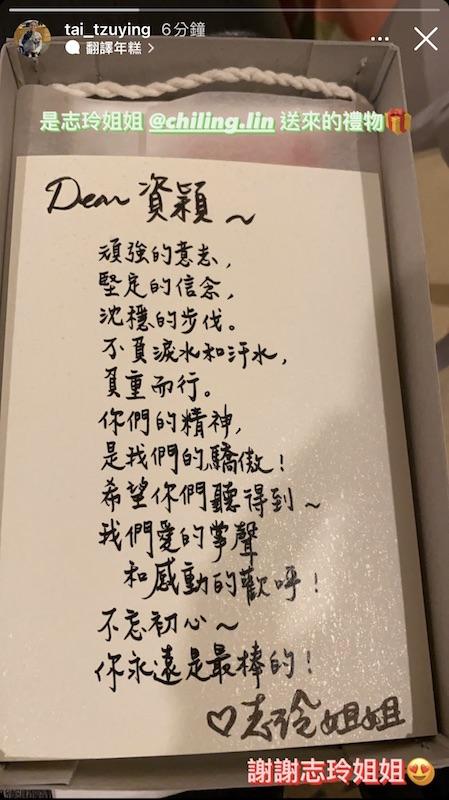 tai_tzuying 6分鐘
翻譯年糕 >
是志玲姐姐 @chiling.lin 送來的禮物🎁
Dear 資穎～
頑強的意志,
堅定的信念,
沈穩的步伐。
不負淚水和汗水,
負重而行。
你們的精神,
是我們的驕傲!
希望你們聽得到～
我們愛的掌聲
和感動的歡呼!
不忘初心～
你永遠是最棒的!
♡志玲姐姐
謝謝志玲姐姐😍